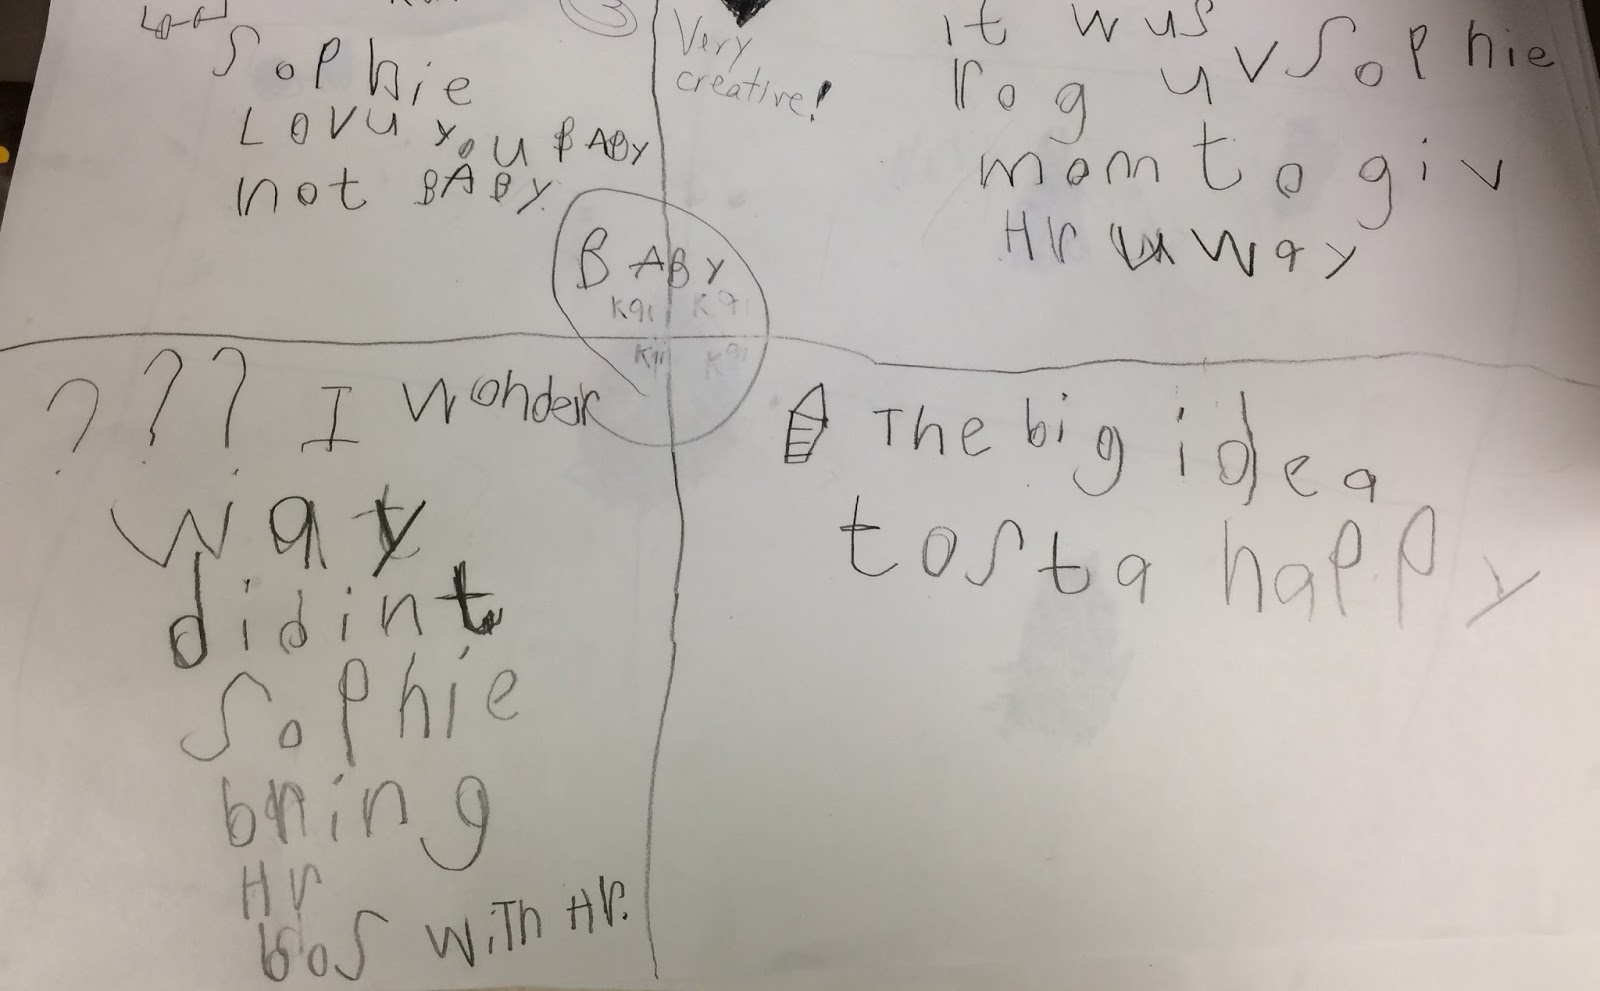 Sophie
Lovu you BABY
not BABY.
Very
creative!
it wus
rog uv Sophie
mom to giv
Hr u way
BABY
Kai Kai
Kai Kai
? ? ? I wonder
way
didint
Sophie
bring
Hr
bos with Hr.
The big idea
to sta happy